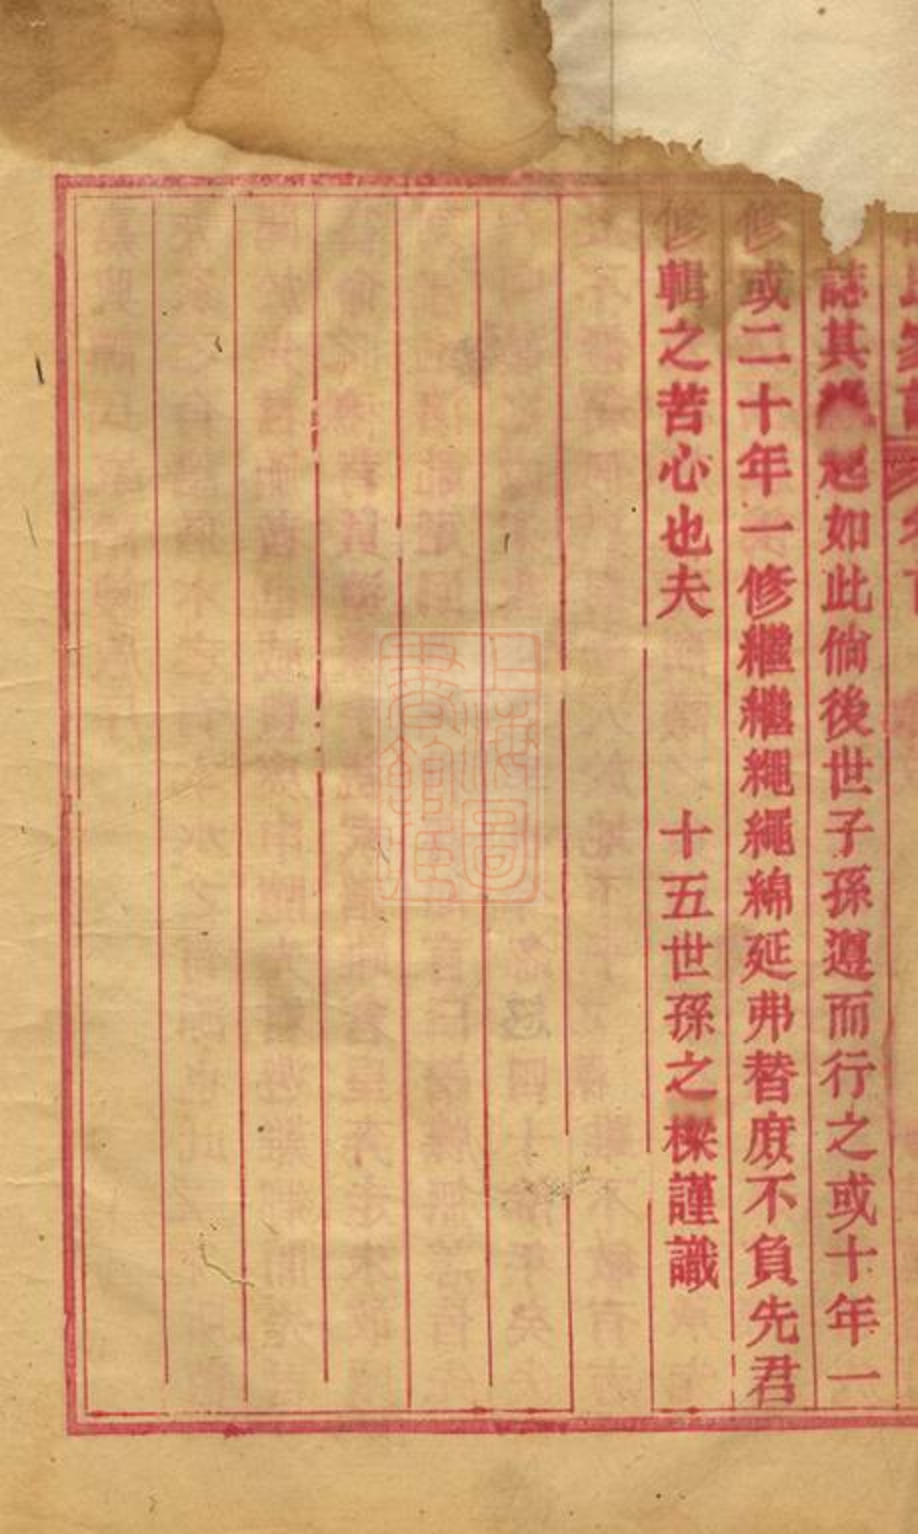 誌其起如此倘後世子孫遵而行之或十年一
修或二十年一修繼繼繩繩綿延弗替庶不負先君
修輯之苦心也夫
十五世孫之樑謹識
上海圖書館藏